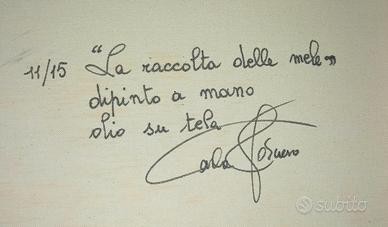 11/15 "La raccolta delle mele"
dipinto a mano
olio su tela
Carlo
subito